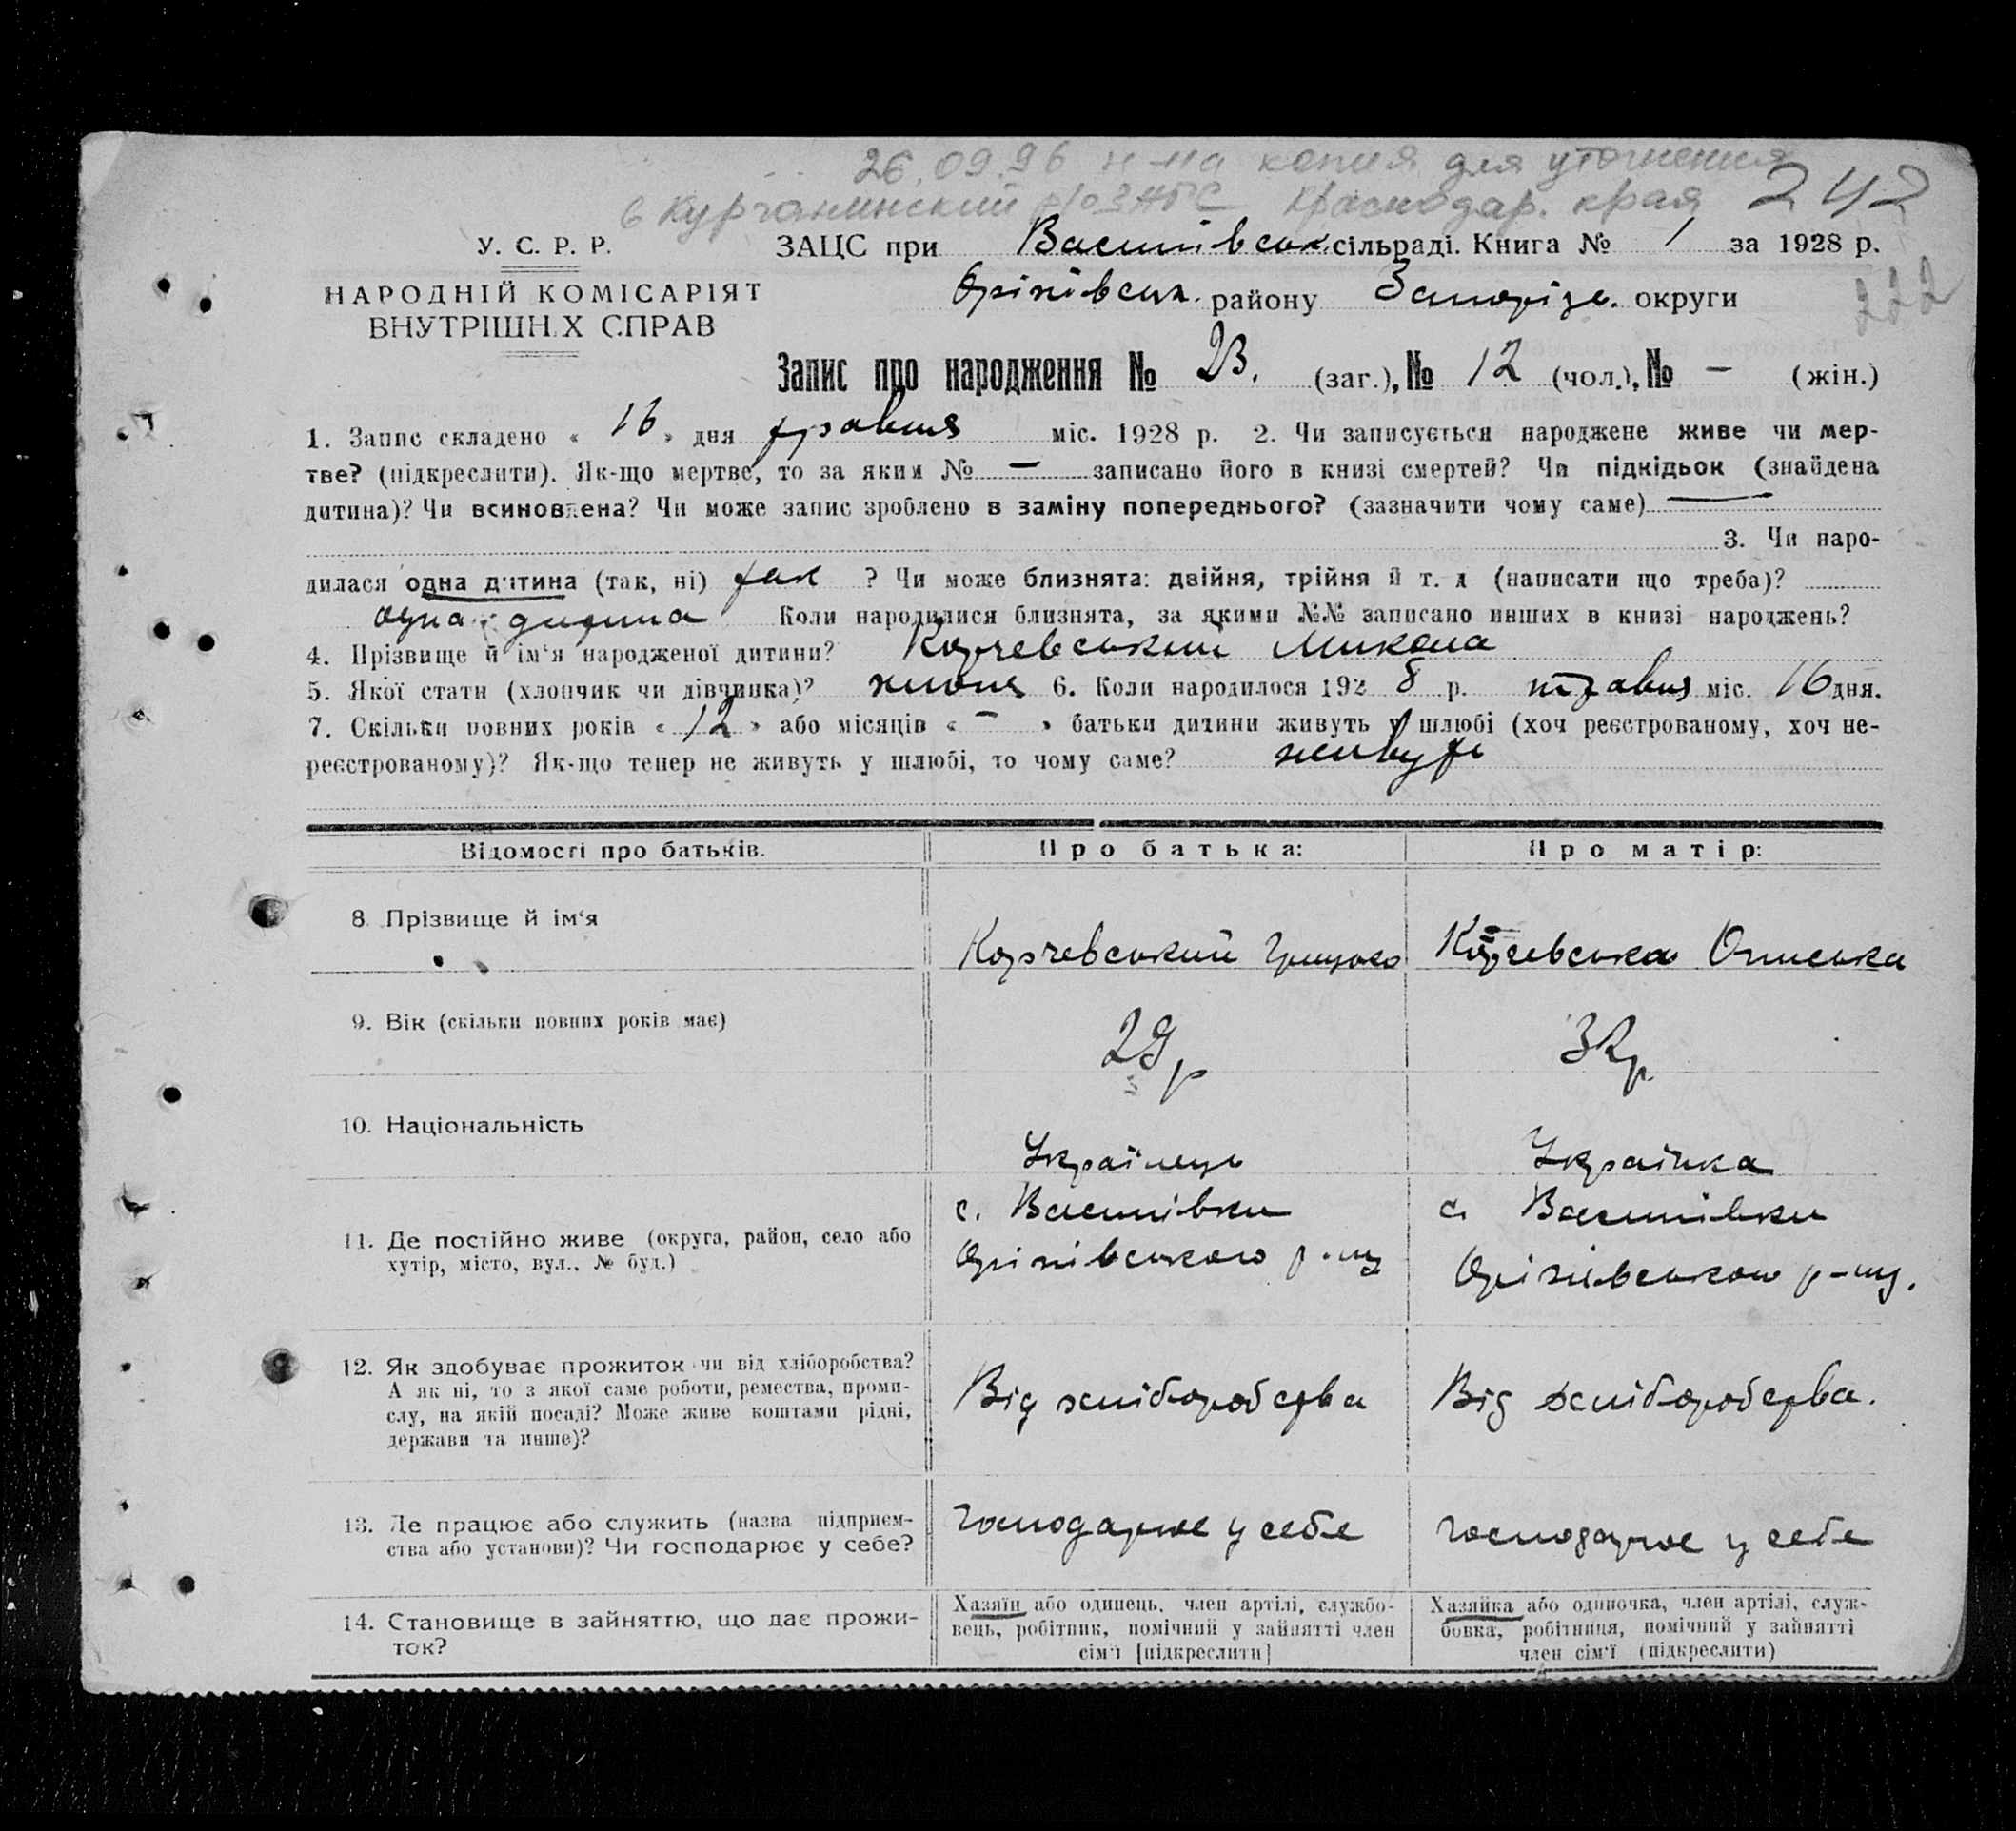 26.09.96 н-на копия для уточнения
в Курганинский р/о ЗАГС Краснодар. края 242
У. С. Р. Р.
ЗАЦС при Васинівськ. сільраді. Книга № 1 за 1928 р.
222
НАРОДНІЙ КОМІСАРІЯТ
ВНУТРІШН.Х СПРАВ
Оріхівськ. району Запоріз. округи
Запис про народження № 23. (заг.), № 12 (чол.), № – (жін.)
1. Запис складено « 16 » дня травня міс. 1928 р. 2. Чи записується народжене живе чи мер-
тве? (підкреслити). Як-що мертве, то за яким № — записано його в книзі смертей? Чи підкідьок (знайдена
дитина)? Чи всиновлена? Чи може запис зроблено в заміну попереднього? (зазначити чому саме) —
3. Чи наро-
дилася одна дитина (так, ні) так ? Чи може близнята: двійня, трійня й т. д (написати що треба)?
одна дитина Коли народилися близнята, за якими №№ записано инших в книзі народжень?
4. Прізвище й ім‘я народженої дитини? Корчевський Микола
5. Якої стати (хлопчик чи дівчинка)? 6. Коли народилося 1928 р. травня міс. 16 дня.
7. Скільки повних років « 12 » або місяців « – » батьки дитини живуть у шлюбі (хоч реєстрованому, хоч не-
реєстрованому)? Як-що тепер не живуть у шлюбі, то чому саме? живуть
Відомості про батьків. Про батька: Про матір:
8. Прізвище й ім‘я Корчевський Грицько Корчевська Олиська
9. Вік (скільки повних років має) 29 р 32 р.
10. Національність Українець Українка
11. Де постійно живе (округа, район, село або
хутір, місто, вул., № буд.)
с. Васинівки
Оріхівського р-ну
с. Васинівки
Оріхівського р-ну.
12. Як здобуває прожиток чи від хліборобства?
А як ні, то з якої саме роботи, ремества, проми-
слу, на якій посаді? Може живе коштами рідні,
держави та инше)?
Від хліборобства
Від хліборобства.
13. Де працює або служить (назва підприєм-
ства або установи)? Чи господарює у себе?
господарює у себе
господарює у себе
14. Становище в зайняттю, що дає прожи-
ток?
Хазяїн або одинець, член артілі, службо-
вець, робітник, помічний у зайнятті член
сім‘ї [підкреслити]
Хазяйка або одиночка, член артілі, служ-
бовка, робітниця, помічний у зайнятті
член сім‘ї (підкреслити)